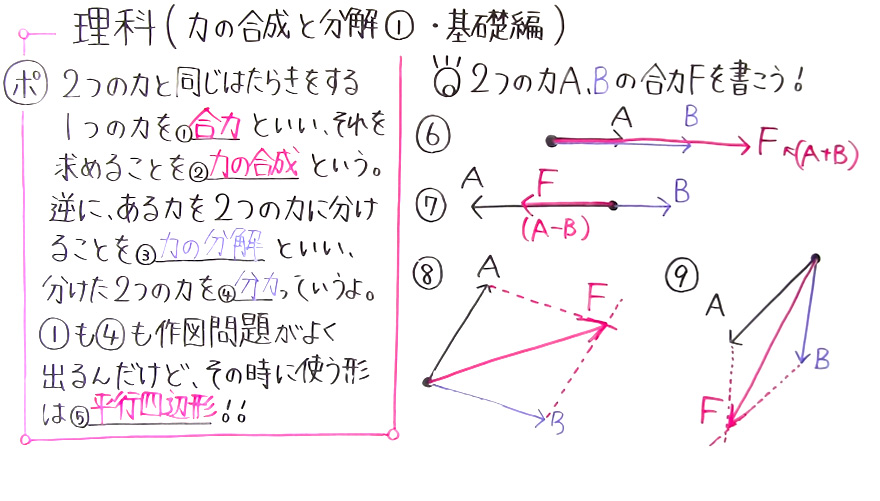 理科(力の合成と分解①・基礎編)
ポ 2つの力と同じはたらきをする
1つの力を①合力といい、それを
求めることを②力の合成という。
逆に、ある力を2つの力に分け
ることを③力の分解といい、
分けた2つの力を④分力っていうよ。
①も④も作図問題がよく
出るんだけど、その時に使う形
は⑤平行四辺形!!
2つの力A、Bの合力Fを書こう!
⑥ A B F (A+B)
⑦ A F B
(A-B)
⑧ A F B
⑨ A B F